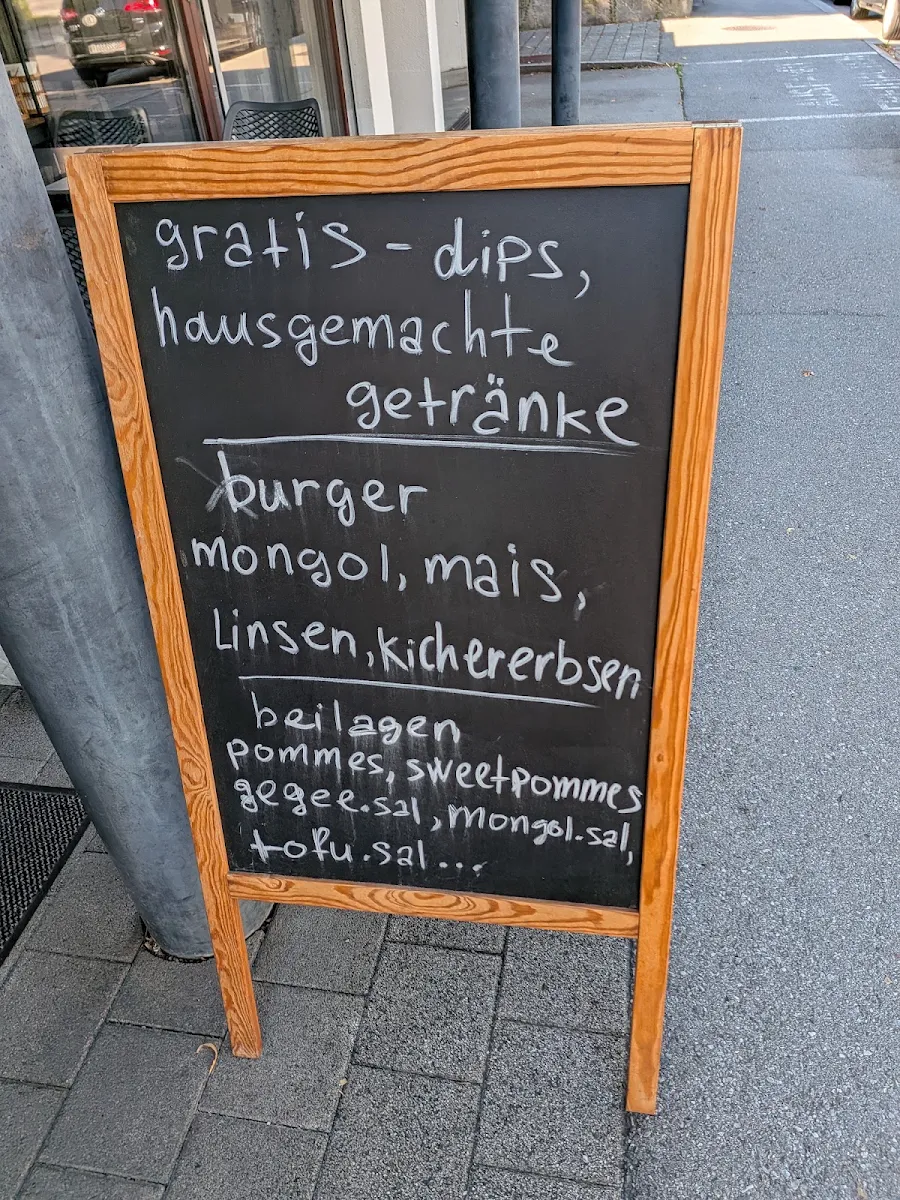 gratis - dips,
hausgemachte
getränke
burger
mongol, mais,
Linsen, kichererbsen
beilagen
pommes, sweetpommes
gegee.sal, mongol.sal,
tofu.sal...